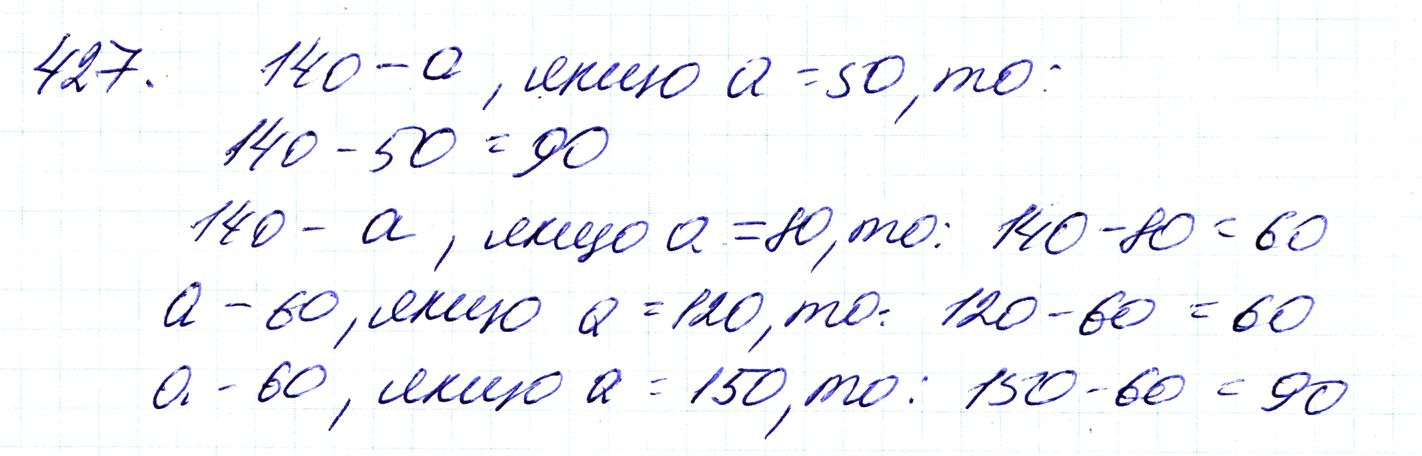 427. 140 - a, якщо a = 50, то:
140 - 50 = 90
140 - a, якщо a = 80, то: 140 - 80 = 60
a - 60, якщо a = 120, то: 120 - 60 = 60
a - 60, якщо a = 150, то: 150 - 60 = 90